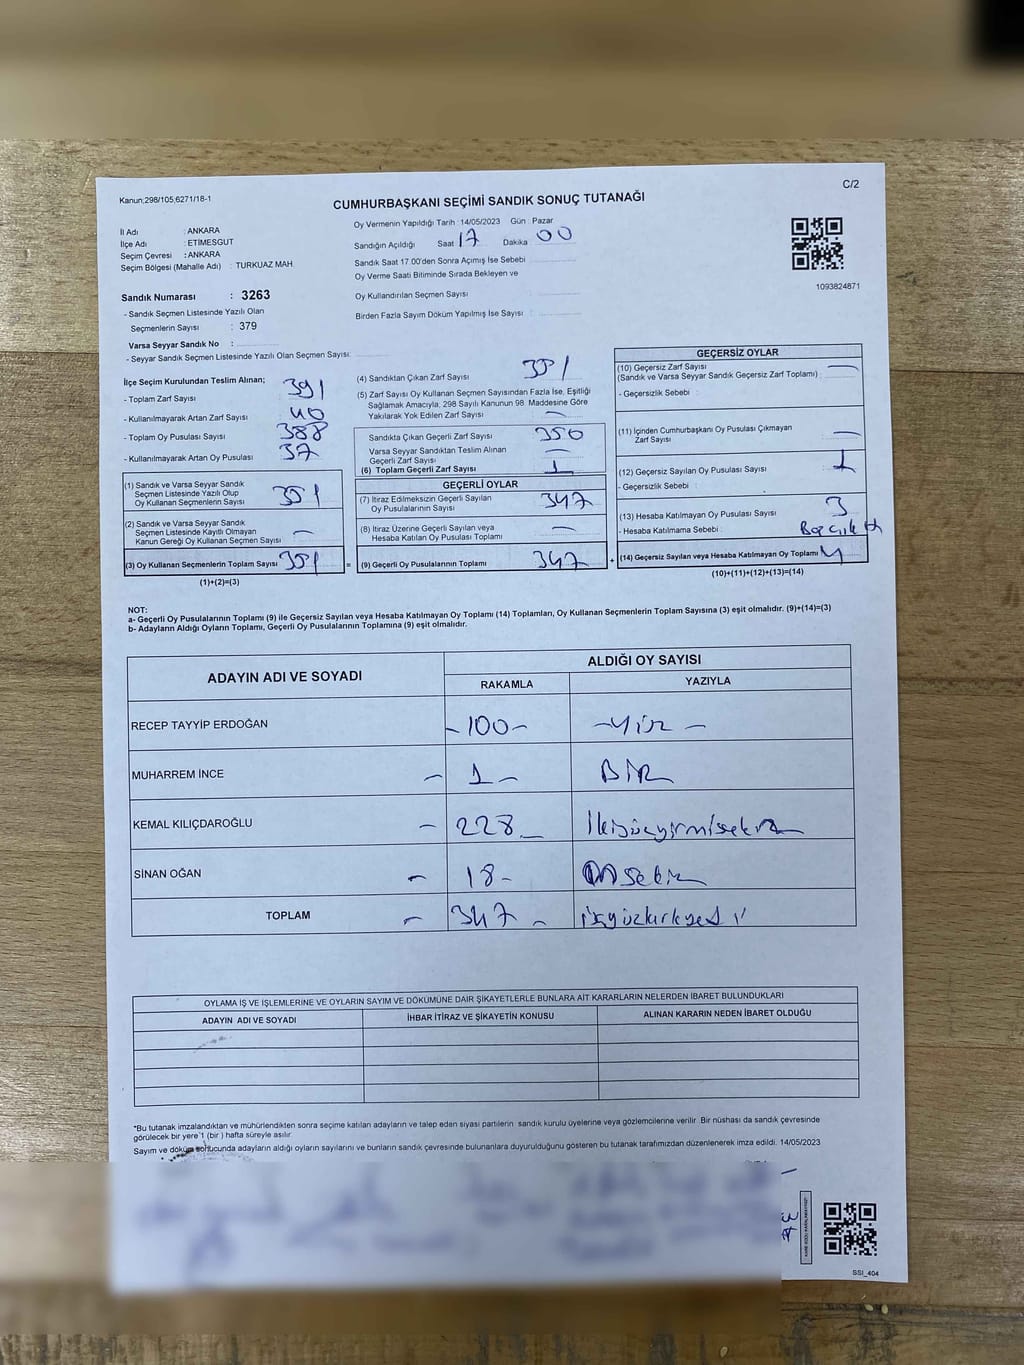 Kanun;298/105;6271/18-1
C/2
CUMHURBAŞKANI SEÇİMİ SANDIK SONUÇ TUTANAĞI
İl Adı : ANKARA
İlçe Adı : ETİMESGUT
Seçim Çevresi : ANKARA
Seçim Bölgesi (Mahalle Adı) : TURKUAZ MAH.
Sandık Numarası : 3263
- Sandık Seçmen Listesinde Yazılı Olan
Seçmenlerin Sayısı : 379
Varsa Seyyar Sandık No :
- Seyyar Sandık Seçmen Listesinde Yazılı Olan Seçmen Sayısı:
Oy Vermenin Yapıldığı Tarih :14/05/2023 Gün : Pazar
Sandığın Açıldığı Saat 17 Dakika 00
Sandık Saat 17.00'den Sonra Açımış İse Sebebi
Oy Verme Saati Bitiminde Sırada Bekleyen ve
Oy Kullandırılan Seçmen Sayısı :
Birden Fazla Sayım Döküm Yapılmış İse Sayısı :
1093824871
İlçe Seçim Kurulundan Teslim Alınan;
- Toplam Zarf Sayısı 391
- Kullanılmayarak Artan Zarf Sayısı 40
- Toplam Oy Pusulası Sayısı 388
- Kullanılmayarak Artan Oy Pusulası 37
(1) Sandık ve Varsa Seyyar Sandık
Seçmen Listesinde Yazılı Olup
Oy Kullanan Seçmenlerin Sayısı 351
(2) Sandık ve Varsa Seyyar Sandık
Seçmen Listesinde Kayıtlı Olmayan
Kanun Gereği Oy Kullanan Seçmen Sayısı —
(3) Oy Kullanan Seçmenlerin Toplam Sayısı 351
(1)+(2)=(3)
(4) Sandıktan Çıkan Zarf Sayısı 351
(5) Zarf Sayısı Oy Kullanan Seçmen Sayısından Fazla İse, Eşitliği
Sağlamak Amacıyla, 298 Sayılı Kanunun 98. Maddesine Göre
Yakılarak Yok Edilen Zarf Sayısı —
Sandıkta Çıkan Geçerli Zarf Sayısı 350
Varsa Seyyar Sandıktan Teslim Alınan
Geçerli Zarf Sayısı —
(6) Toplam Geçerli Zarf Sayısı 1
GEÇERLİ OYLAR
(7) İtiraz Edilmeksizin Geçerli Sayılan
Oy Pusulalarının Sayısı 347
(8) İtiraz Üzerine Geçerli Sayılan veya
Hesaba Katılan Oy Pusulası Toplamı —
= (9) Geçerli Oy Pusulalarının Toplamı 347
GEÇERSİZ OYLAR
(10) Geçersiz Zarf Sayısı —
(Sandık ve Varsa Seyyar Sandık Geçersiz Zarf Toplamı) :
- Geçersizlik Sebebi :
(11) İçinden Cumhurbaşkanı Oy Pusulası Çıkmayan
Zarf Sayısı —
(12) Geçersiz Sayılan Oy Pusulası Sayısı 1
- Geçersizlik Sebebi :
(13) Hesaba Katılmayan Oy Pusulası Sayısı 3
- Hesaba Katılmama Sebebi :
+ (14) Geçersiz Sayılan veya Hesaba Katılmayan Oy Toplamı 4
(10)+(11)+(12)+(13)=(14)
NOT:
a- Geçerli Oy Pusulalarının Toplamı (9) ile Geçersiz Sayılan veya Hesaba Katılmayan Oy Toplamı (14) Toplamları, Oy Kullanan Seçmenlerin Toplam Sayısına (3) eşit olmalıdır. (9)+(14)=(3)
b- Adayların Aldığı Oyların Toplamı, Geçerli Oy Pusulalarının Toplamına (9) eşit olmalıdır.
ADAYIN ADI VE SOYADI
ALDIĞI OY SAYISI
RAKAMLA YAZIYLA
RECEP TAYYİP ERDOĞAN -100- -Yüz-
MUHARREM İNCE - 1 - BİR
KEMAL KILIÇDAROĞLU - 228 - İkiyüzyirmisekiz
SİNAN OĞAN - 18 - Onsekiz
TOPLAM - 347 - üçyüzkırkyedi
OYLAMA İŞ VE İŞLEMLERİNE VE OYLARIN SAYIM VE DÖKÜMÜNE DAİR ŞİKAYETLERLE BUNLARA AİT KARARLARIN NELERDEN İBARET BULUNDUKLARI
ADAYIN ADI VE SOYADI İHBAR İTİRAZ VE ŞİKAYETİN KONUSU ALINAN KARARIN NEDEN İBARET OLDUĞU
*Bu tutanak imzalandıktan ve mühürlendikten sonra seçime katılan adayların ve talep eden siyasi partilerin sandık kurulu üyelerine ve gözlemcilerine verilir. Bir nüshası da sandık çevresinde
görülecek bir yere 1 (bir ) hafta süreyle asılır.
Sayım ve döküm sonucunda adayların aldığı oyların sayılarını ve bunların sandık çevresinde bulunanlara duyurulduğunu gösteren bu tutanak tarafımızdan düzenlenerek imza edildi. 14/05/2023
SSI_404